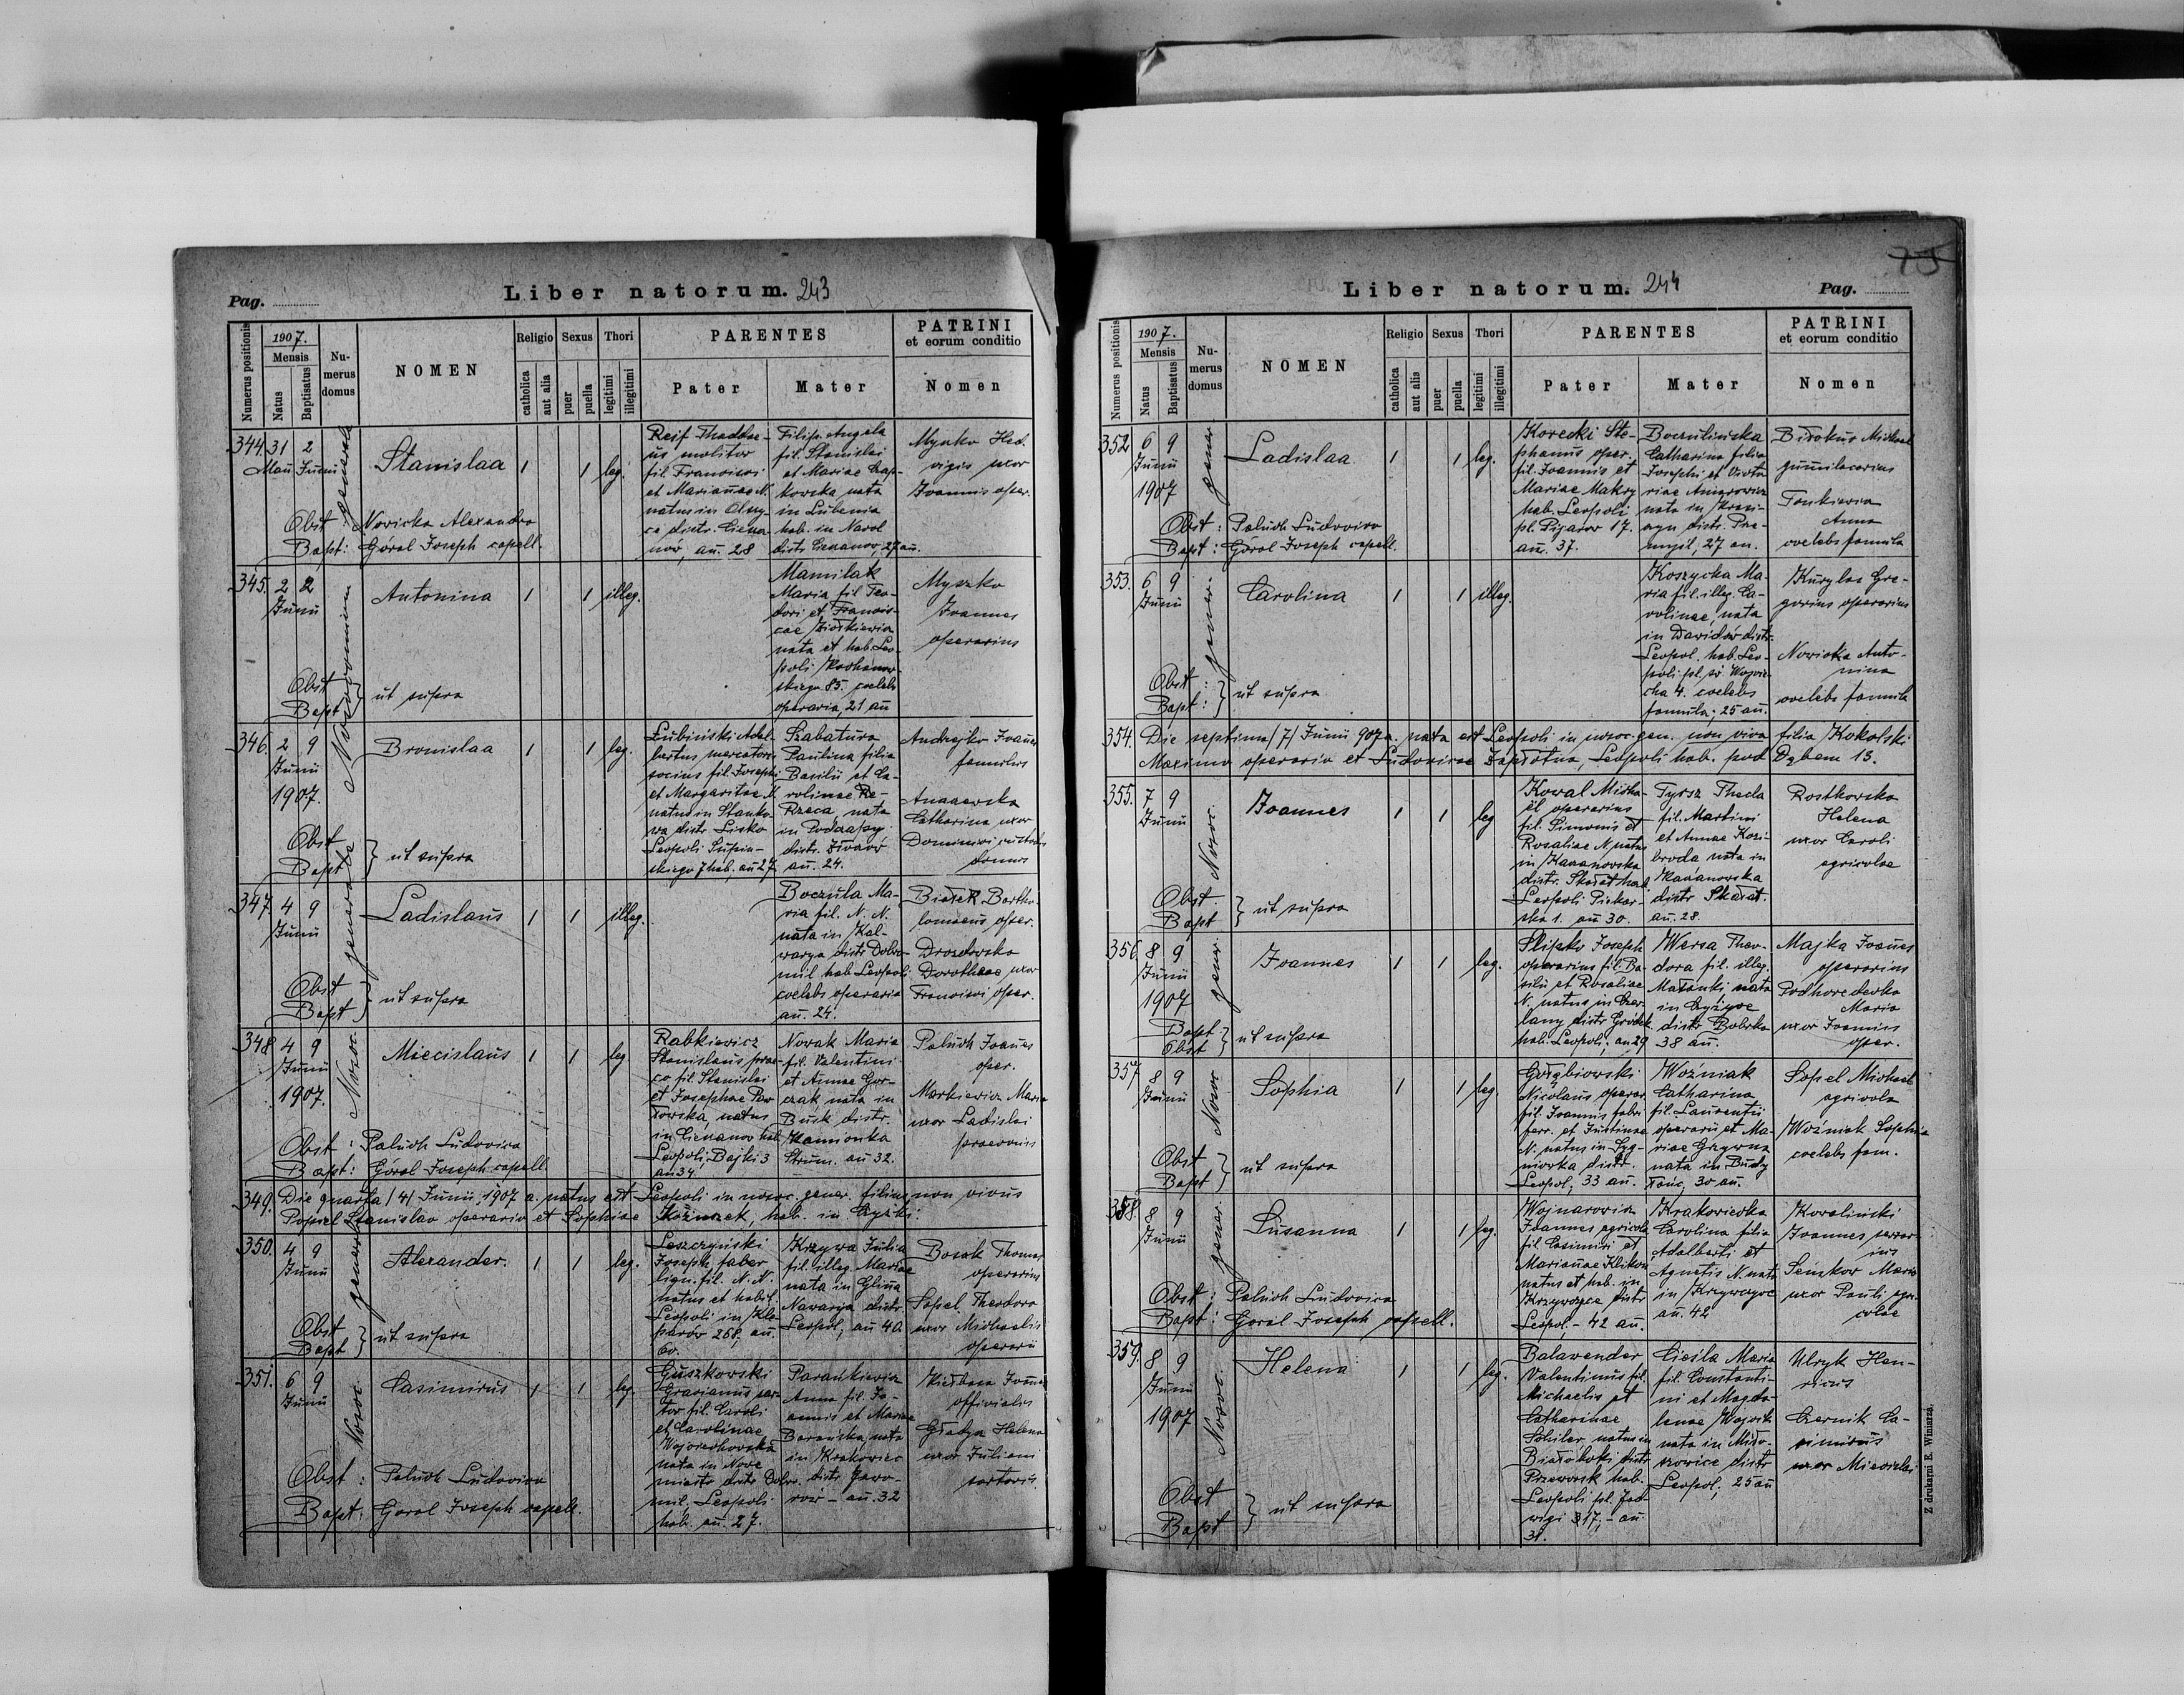 Pag.
Liber natorum. 243
Numerus positionis
1907.
Mensis
Natus
Baptisatus
Nu-
merus
domus
NOMEN
Religio
catholica
aut alia
Sexus
puer
puella
Thori
legitimi
illegitimi
PARENTES
Pater
Mater
PATRINI
et eorum conditio
Nomen
344. 31 2
Maii Junii
generale
Stanislaa 1 1 leg.
Reif Thaddae-
us molitor
fil. Francisci
et Mariannae N.
natus in
ca distr. Ciesza
nów, an. 28
Filip Angela
fil. Stanislai
et Mariae
kowska nata
in Lubenia
hab. in Narol
distr. Cieszanov, 27 an.
Myszko Hed.
vigis uxor
Joannis oper.
Obst: Nowicka Alexandra
Bapt: Góral Joseph capell.
345. 2 2
Junii
Nosocomium
Antonina 1 1 illeg.
Mamilak
Maria fil Teo-
dori et Francis-
cae Ziołkiewicz
nata et hab. Leo-
poli Kochanow-
skiego 85. coelebs
operaria, 21 an
Myszko
Joannes
operarius
Obst
Bapt } ut supra
346. 2 9
Junii
1907.
Bronislaa 1 1 leg.
Łubinski Adal-
bertus mercatoris
socius fil. Josephi
et Margaritae N.
natus in Stanko-
wa distr Lisko
Leopoli Supin-
skiego 7 hab. an 27
Szabatura
Paulina filia
Basilii et Ca-
rolinae Re-
Rzeca, nata
in
distr.
an. 24.
Andrejko Joannes
famulus
Catharina uxor
Dominici custodis
domus
Obst
Bapt } ut supra
347. 4 9
Junii
generale
Ladislaus 1 1 illeg.
Boczula Ma-
ria fil. N. N.
nata in Kal-
warya distr Dobro-
mil hab. Leopoli
coelebs operaria
an. 24.
Białek Bartho-
lomaeus oper.
Drozdowska
Dorotheae uxor
Francisci oper.
Obst
Bapt } ut supra
348 4 9
Junii
1907.
Nosoc.
Miecislaus 1 1 leg
Rabkiewicz
Stanislaus prae-
co fil. Stanislai
et Josephae Paw
łowska, natus
in Cieszanov hab.
Leopoli, Bajki 3
an 34.
Novak Maria
fil. Valentini
et Annae Gor-
czak nata in
Busk distr.
Kamionka
Strum. an 32.
Paluch Joannes
oper.
Markiewicz Maria
uxor Ladislai
praeconis
Obst: Paluch Ludovica
Bapt: Góral Joseph capell
349. Die quarta /4/ Junii 1907 a. natus est Leopoli in nosoc. gener. filius non vivus
Popiel Stanislao operario et Sophiae Kożuszek, hab. in Czyżki.
350. 4 9
Junii
gener.
Alexander. 1 1 leg.
Leszczyński
Joseph, faber
lign. fil. N. N.
natus et habit.
Leopoli in Kle-
parów 268, an.
60.
Krzywa Julia
fil. illeg. Mariae
nata in Glinna
Nawarya distr
Leopol, an 40
Bosak Thomas
operarius
Sopel Theodora
uxor Michaelis
operarii
Obst
Bapt } ut supra
351. 6 9
Junii
Nosoc.
Casimirus 1 1 leg.
Guszkowski
Gracianus sar-
tor fil. Caroli
et Carolinae
Wojciechowska
nata in Nowe
miasto distr Dobro-
mil, Leopoli
hab. an. 27.
Parankiewicz
Anna fil. Jo-
annis et Mariae
Barańska, nata
in Krakowiec
distr. Jawo-
rów - an. 32
Kiełbasa Joannes
officialis
Helena
uxor Juliani
sartoris
Obst: Paluch Ludovica
Bapt: Goral Joseph capell.
75
Liber natorum. 244
Pag.
Numerus positionis
1907.
Mensis
Natus
Baptisatus
Nu-
merus
domus
NOMEN
Religio
catholica
aut alia
Sexus
puer
puella
Thori
legitimi
illegitimi
PARENTES
Pater
Mater
PATRINI
et eorum conditio
Nomen
352 6 9
Junii
1907
gener.
Ladislaa 1 1 leg.
Korecki Ste-
phanus oper.
fil. Joannis et
Mariae Makry
hab. Leopoli
pl. Pijarow 17.
an. 37.
Boczulinska
Catharina filia
Josephi et Victo
riae
nata in Krasi-
czyn distr. Prze-
mysl, 27 an.
Michael
Tonkiewicz
Anna
coelebs famula
Obst: Paluch Ludovica
Bapt: Góral Joseph capell.
353. 6 9
Junii
gener.
Carolina 1 1 illeg.
Koszycka Ma-
ria fil. illeg. Ca-
rolinae, nata
in Dawidów distr.
Leopol. hab. Leo-
poli pl. św. Wojcie-
cha 4. coelebs
famula; 25 an.
Kurylas Gre-
gorius operarius
Nowicka Anto-
nina
coelebs famula
Obst:
Bapt: } ut supra
354. Die septima /7/ Junii 907 a. nata est Leopoli in nosoc. gen. non viva filia Kokolski
Maximo operario et Ludovicae Zapłotna, Leopoli hab. pod Dębem 13.
355. 7 9
Junii
Nosoc.
Joannes 1 1 leg
Kowal Micha-
el operarius
fil. Simonis et
Rosaliae N. natus
in Kaczanowka
distr. Skałat hab.
Leopoli Piekar-
ska 1. an 30.
Tyrsz Thecla
fil. Martini
et Annae Kozi-
broda nata in
Kaczanowka
distr Skałat.
an. 28.
Rostkowska
Helena
uxor Caroli
agricolae
Obst
Bapt } ut supra
356. 8 9
Junii
1907
gener.
Joannes 1 1 leg.
Slipko Joseph
operarius fil. Ba
silii et Rosaliae
N. natus in Czer-
lany distr Gródek
hab. Leopoli; an 29
Wersa Theo-
dora fil. illeg.
nata
in Czyżyce
distr Bobrka
38 an.
Majka Joannes
operarius
Podhorodecka
Maria
uxor Joannis
oper.
Bapt
Obst } ut supra
357. 8 9
Junii
Nosoc
Sophia 1 1 leg.
Gołąbiowski
Nicolaus operar.
fil. Joannis fabri
ferr. et Justinae
N. natus in Zyg-
niowka distr.
Leopol, 33 an.
Woźniak
Catharina
fil. Laurentii
operarii et Ma-
riae
nata in Budy
Łańc, 30 an.
Sopel Michael
agricola
Woźniak Sophia
coelebs fam.
Obst
Bapt } ut supra
358. 8 9
Junii
gener.
Susanna 1 1 leg.
Wojnarowicz
Joannes agricola
fil. Casimiri et
Mariannae Klikon
natus et hab. in
Krzywczyce distr
Leopol, - 42 an.
Krakowiecka
Carolina filia
Adalberti et
Agnetis N. nata
in Krzywczyce
an. 42
Kowaliński
Joannes
Senkow Maria
uxor Pauli agri-
colae
Obst: Paluch Ludovica
Bapt: Goral Joseph capell.
359. 8 9
Junii
1907
Nosoc.
Helena 1 1 leg.
Balawender
Valentinus fil.
Michaelis et
Catharinae
Schiler natus in
Białoboki distr
Przeworsk hab.
Leopoli pl. Jad-
wigi 317, - an
31.
Cieśla Maria
fil. Constanti-
ni et Magda-
lenae Wojcik
nata in Miło-
szowice distr
Leopol; 25 an
Ulryk Hen-
ricus
Czernik Ca-
simirus
uxor Miecislai
Obst
Bapt } ut supra
Z drukarni E. Winiarza.